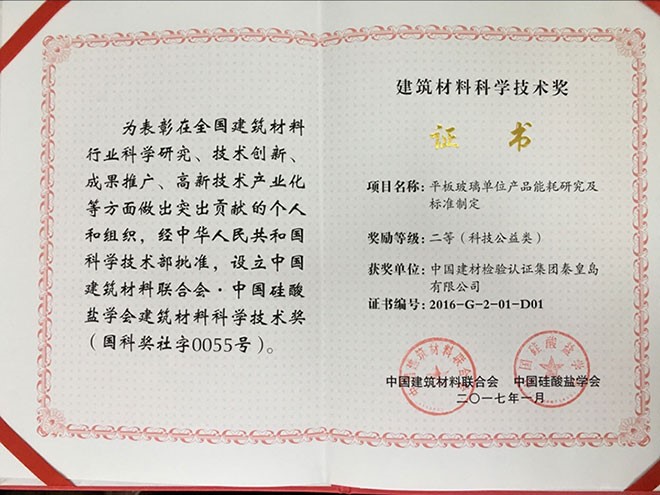 为表彰在全国建筑材料
行业科学研究、技术创新、
成果推广、高新技术产业化
等方面做出突出贡献的个人
和组织，经中华人民共和国
科学技术部批准，设立中国
建筑材料联合会·中国硅酸
盐学会建筑材料科学技术奖
（国科奖社字0055号）。
建筑材料科学技术奖
证书
项目名称：平板玻璃单位产品能耗研究及
标准制定
奖励等级：二等（科技公益类）
获奖单位：中国建材检验认证集团秦皇岛
有限公司
证书编号：2016-G-2-01-D01
中国建筑材料联合会
中国硅酸盐学会
中国建筑材料联合会 中国硅酸盐学会
二〇一七年一月